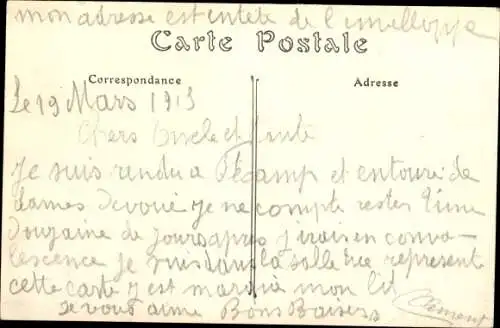 mon adresse est entete de l'envelloppe
Carte Postale
Correspondance
Adresse
Le 19 Mars 1915
Chers Oncle et Tante
Je suis rendu a Fécamp et entouré de
dames devoué je ne compte rester q'une
douzaine de jours apres j'irais en conva-
lescence je suis dans la salle que represente
cette carte j est marqué mon lit
je vous aime Bons Baisers
Clément